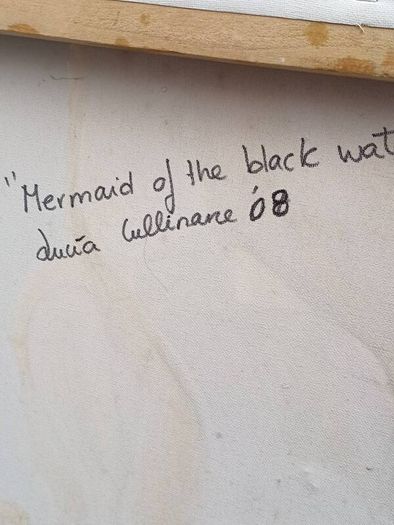 "Mermaid of the black wat
Lucia Cullinane '08